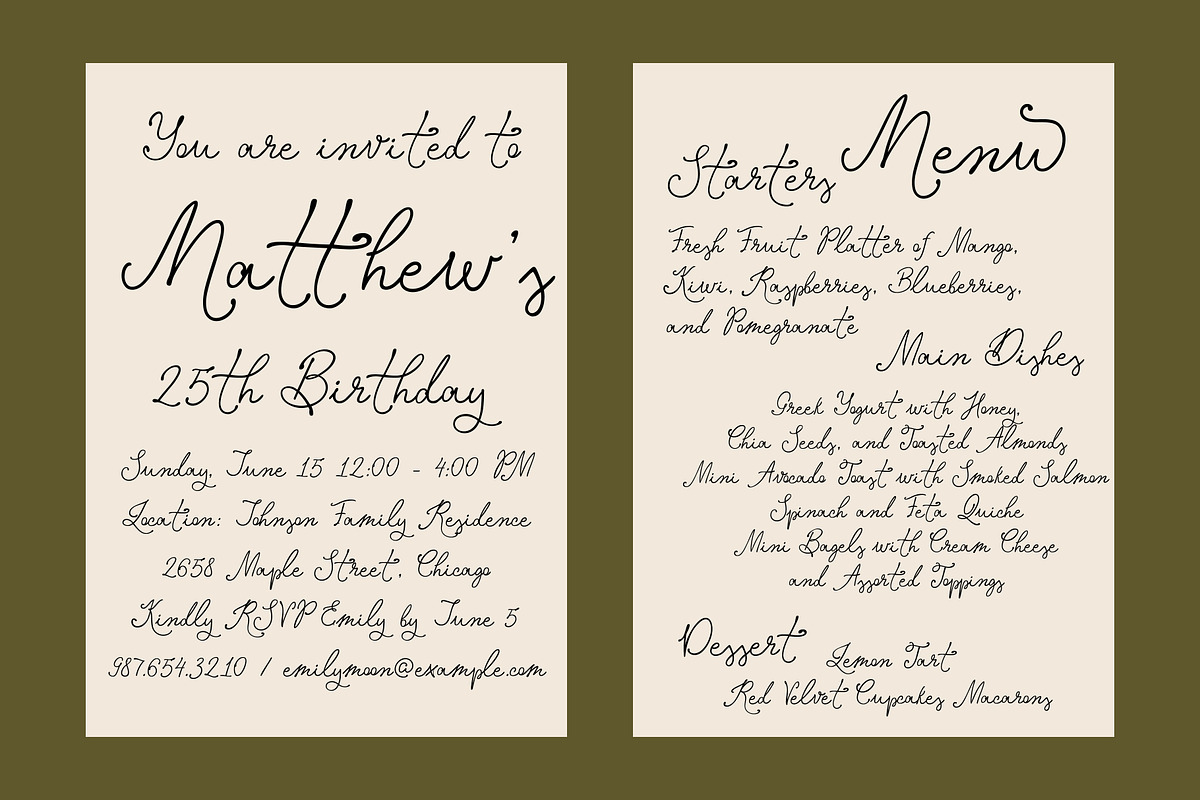 You are invited to
Matthew's
25th Birthday
Sunday, June 15 12:00 - 4:00 PM
Location: Johnson Family Residence
2658 Maple Street, Chicago
Kindly RSVP Emily by June 5
987.654.3210 / emilymoon@example.com
Menu
Starters
Fresh Fruit Platter of Mango,
Kiwi, Raspberries, Blueberries,
and Pomegranate
Main Dishes
Greek Yogurt with Honey,
Chia Seeds, and Toasted Almonds
Mini Avocado Toast with Smoked Salmon
Spinach and Feta Quiche
Mini Bagels with Cream Cheese
and Assorted Toppings
Dessert
Lemon Tart
Red Velvet Cupcakes Macarons